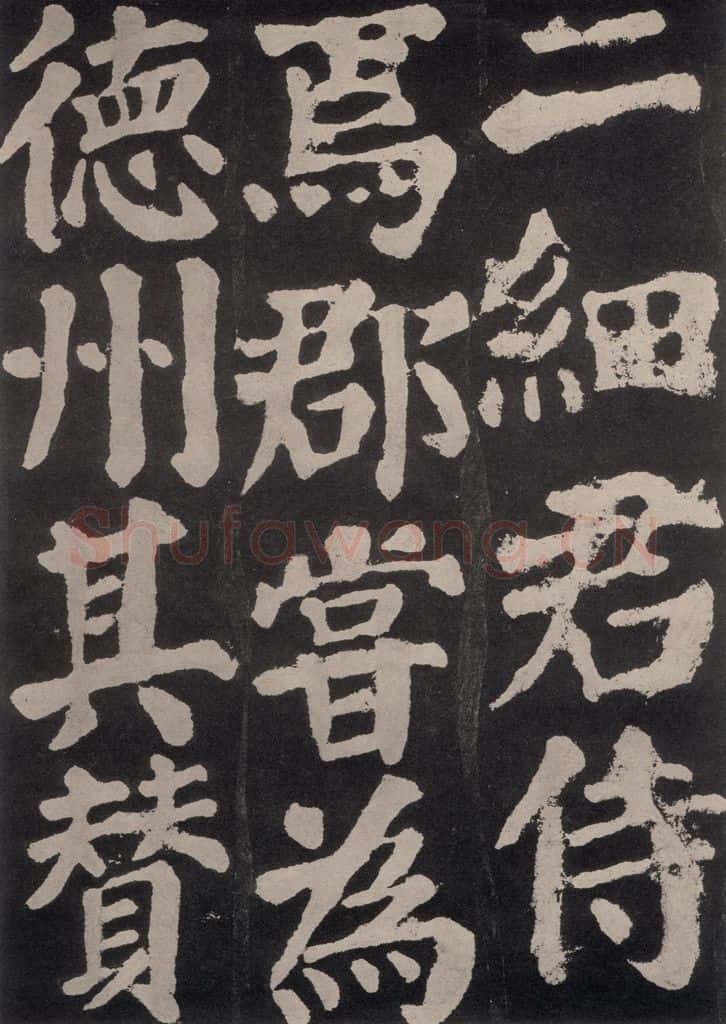 二細君侍
焉郡嘗為
德州其賛
Shufawang.CN